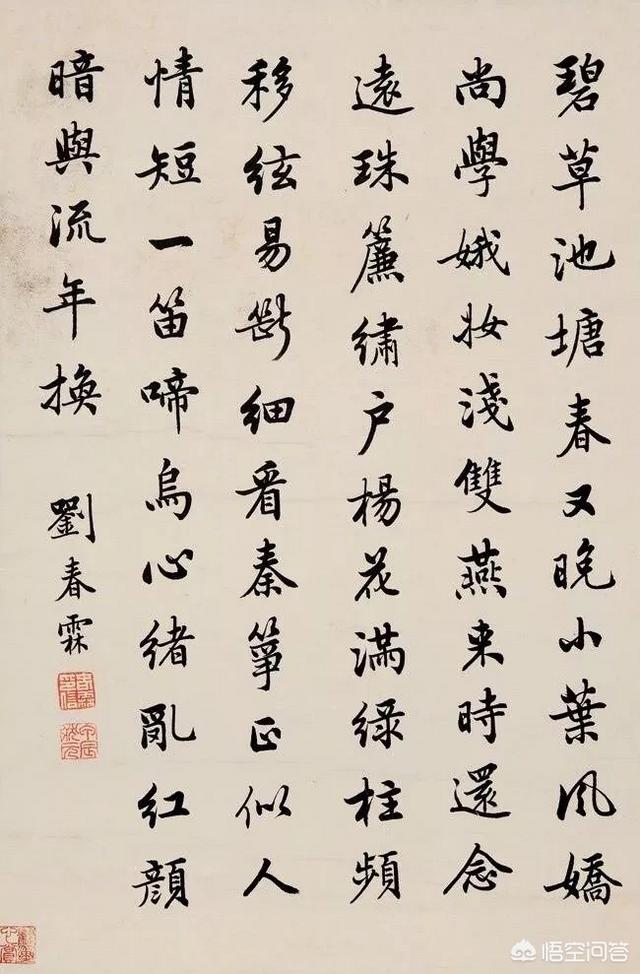 碧草池塘春又晚小葉風嬌
尚學娥妝淺雙燕来時還念
遠珠簾繡户楊花滿緑柱頻
移絃易斷細看秦箏正似人
情短一笛啼烏心緒亂红顔
暗與流年換
劉春霖
悟空问答